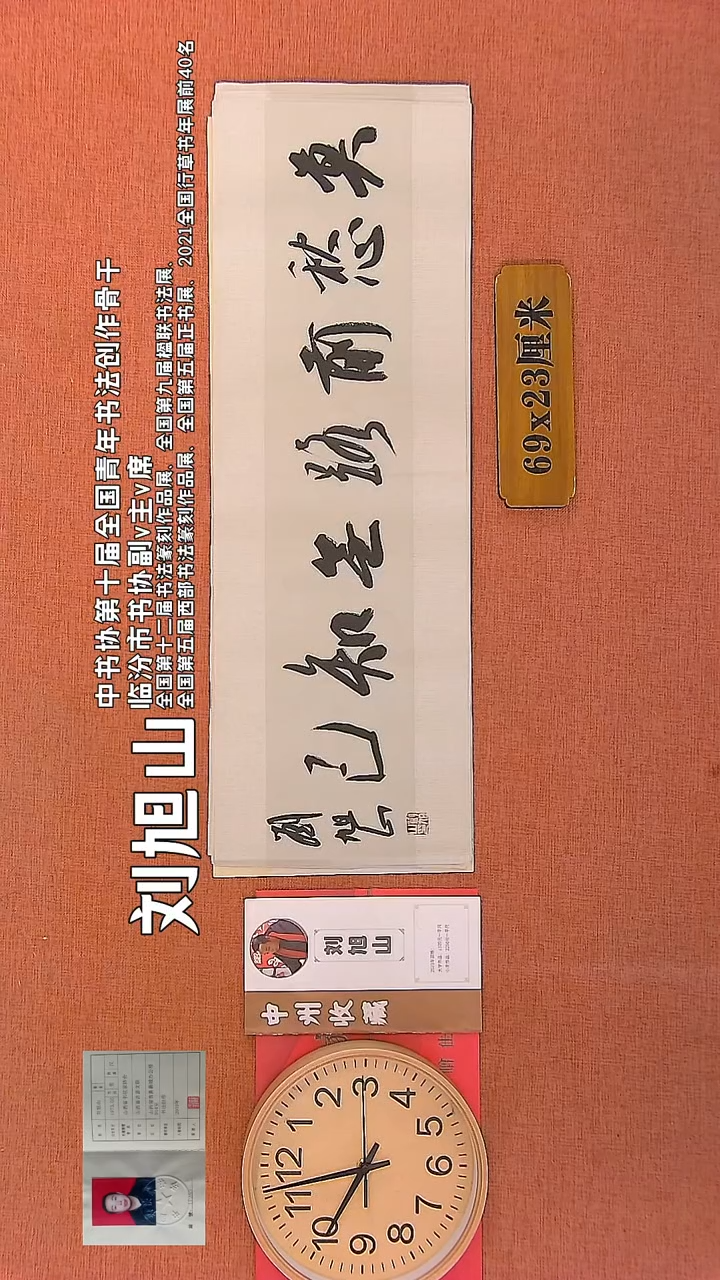 中书协第十届全国青年书法创作骨干
临汾市书协副v主v席
全国第十二届书法篆刻作品展、全国第九届楹联书法展、
全国第五届西部书法篆刻作品展、全国第五届正书展、2021全国行草书年展前40名
刘旭山
莫愁前路無知己
劉旭山
69x23厘米
刘旭山
中州收藏
12
1
2
3
4
5
6
7
8
9
10
11